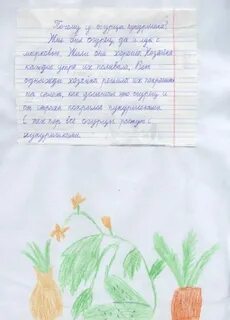 Почему у огурца пупурышки?
Жил они огурец, да и лук с
морковью. Жили они хорошо. Хозяйка
каждое утро их поливала. Вот
однажды хозяйка решила их покрошить
на салат, как дотянется до огурец и
он страхом покрылся пупурышками.
С тех пор все огурцы растут с
пупурышками